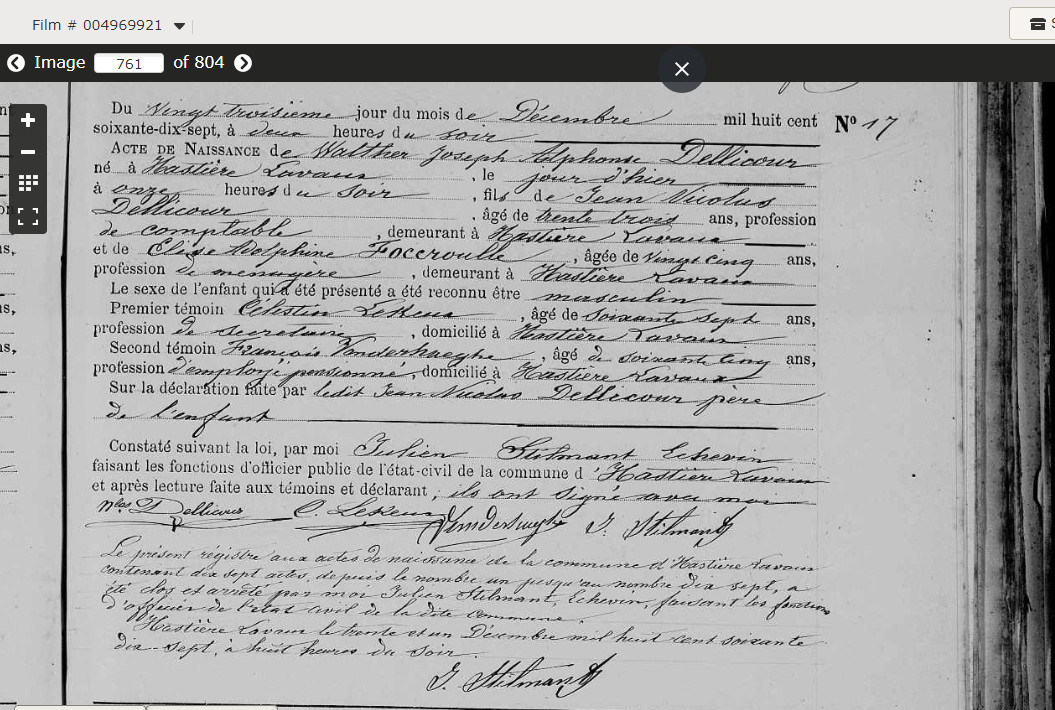 Film # 004969921
Image 761 of 804
Du Vingt troisième jour du mois de Décembre mil huit cent N° 17
soixante-dix-sept, à deux heures du soir
ACTE DE NAISSANCE de Walther Joseph Alphonse Dellicour
né à Hastière Lavaux, le jour d'hier
à onze heures du Soir, fils de Jean Nicolas
Dellicour, âgé de trente trois ans, profession
de comptable, demeurant à Hastière Lavaux
et de Elise Adolphine Foccroulle, âgée de vingt cinq ans,
profession de menagère, demeurant à Hastière Lavaux
Le sexe de l'enfant qui a été présenté a été reconnu être masculin
Premier témoin Célestin Lekeux, âgé de soixante sept ans,
profession de secrétaire, domicilié à Hastière Lavaux
Second témoin François Vanderhaeghe, âgé de soixante cinq ans,
profession d'employé pensionné, domicilié à Hastière Lavaux
Sur la déclaration faite par ledit Jean Nicolas Dellicour père
de l'enfant
Constaté suivant la loi, par moi Julien Stilmant Echevin
faisant les fonctions d'officier public de l'état-civil de la commune d'Hastière Lavaux
et après lecture faite aux témoins et déclarant, ils ont Signé avec moi
Nlas Dellicour C. Lekeux Vanderhaeghe J. Stilmant
Le présent régistre aux actes de naissance de la commune d'Hastière Lavaux
contenant dix sept actes, depuis le nombre un jusqu'au nombre dix sept, a
été clos et arrêté par moi Julien Stilmant, Echevin, faisant les fonctions
d'officier de l'état civil de la dite commune.
Hastière Lavaux le trente et un Décembre mil huit cent soixante
dix-sept, à huit heures du Soir.
J. Stilmant